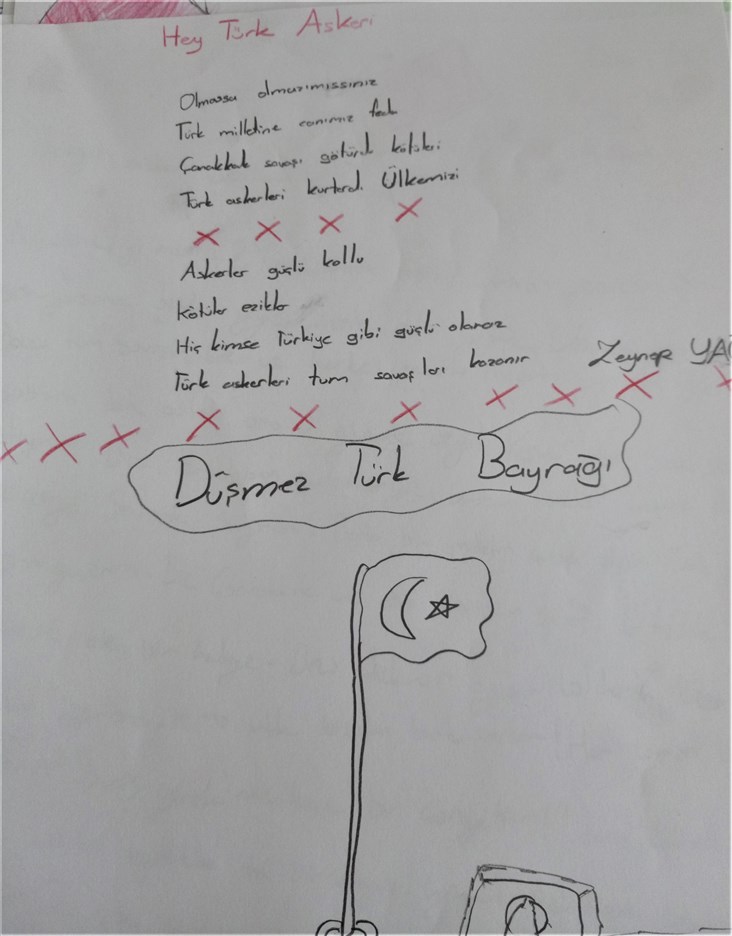 Hey Türk Askeri
Olmassa olmazımıssınız
Türk milletine canımız feda
Çanakkale savaşı götürdü kötüleri
Türk askerleri kurtardı Ülkemizi
Askerler güçlü kollu
kötüler ezikler
Hiç kimse Türkiye gibi güçlü olamaz
Türk askerleri tum savaşları kazanır
Zeynep YAĞ
Düşmez Türk Bayrağı